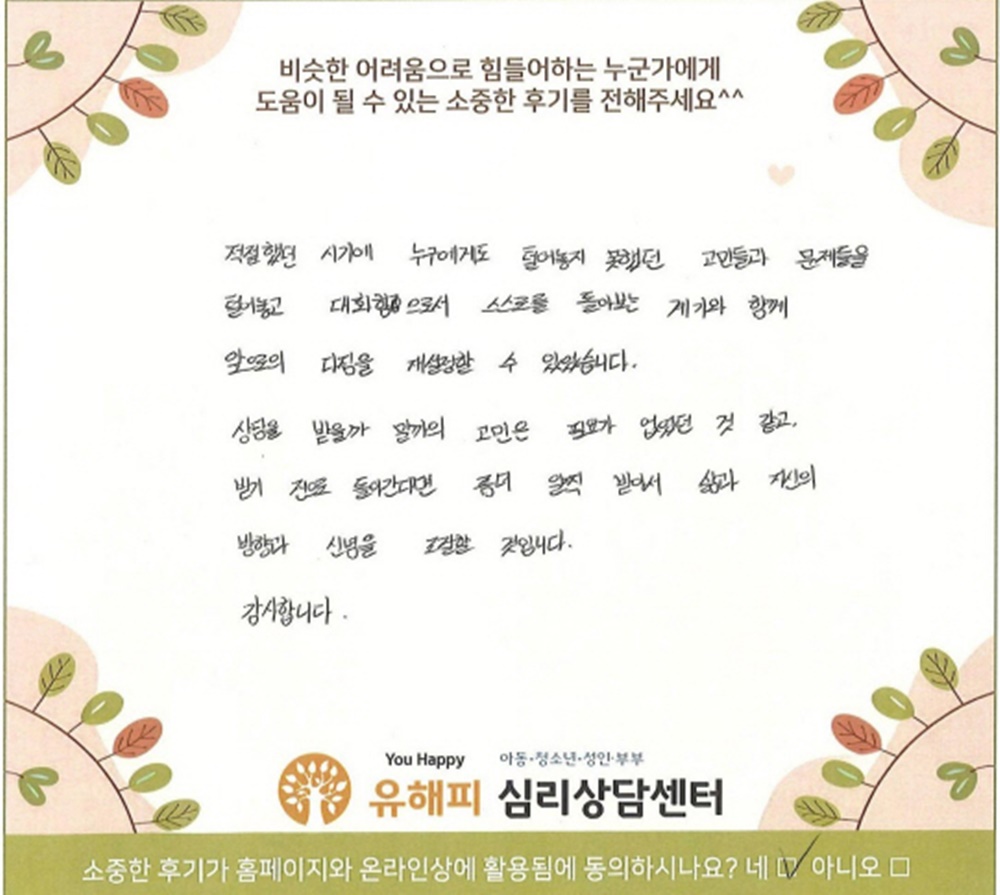 비슷한 어려움으로 힘들어하는 누군가에게
도움이 될 수 있는 소중한 후기를 전해주세요^^
적절했던 시기에 누구에게도 털어놓지 못했던 고민들과 문제들을
털어놓고 대화함으로서 스스로를 돌아보는 계기와 함께
앞으로의 다짐을 재설정할 수 있었습니다.
상담을 받을까 말까의 고민은 필요가 없었던 것 같고,
받기 전으로 돌아간다면 좀더 일찍 받아서 삶과 자신의
방향과 신념을 조절할 것입니다.
감사합니다.
You Happy 아동·청소년·성인·부부
유해피 심리상담센터
소중한 후기가 홈페이지와 온라인상에 활용됨에 동의하시나요? 네 ☑ 아니오 □